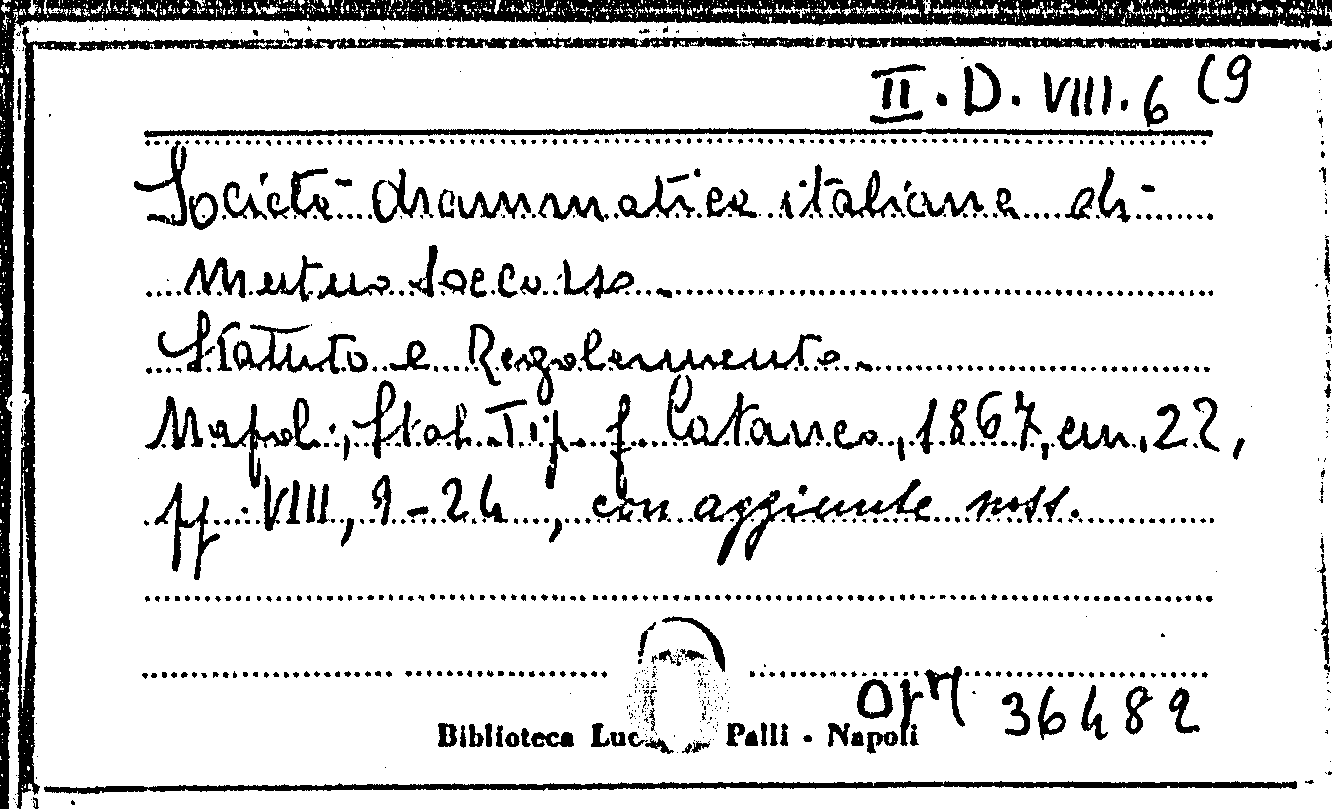 II. D. VIII. 6 (9
Società drammatica italiana di
mutuo soccorso.
Statuto e Regolamento.
Napoli, Stab. Tip. f. Cataneo, 1867, cm. 22,
pp. VIII, 9-24, con aggiunte mss.
Biblioteca Palli - Napoli
36482